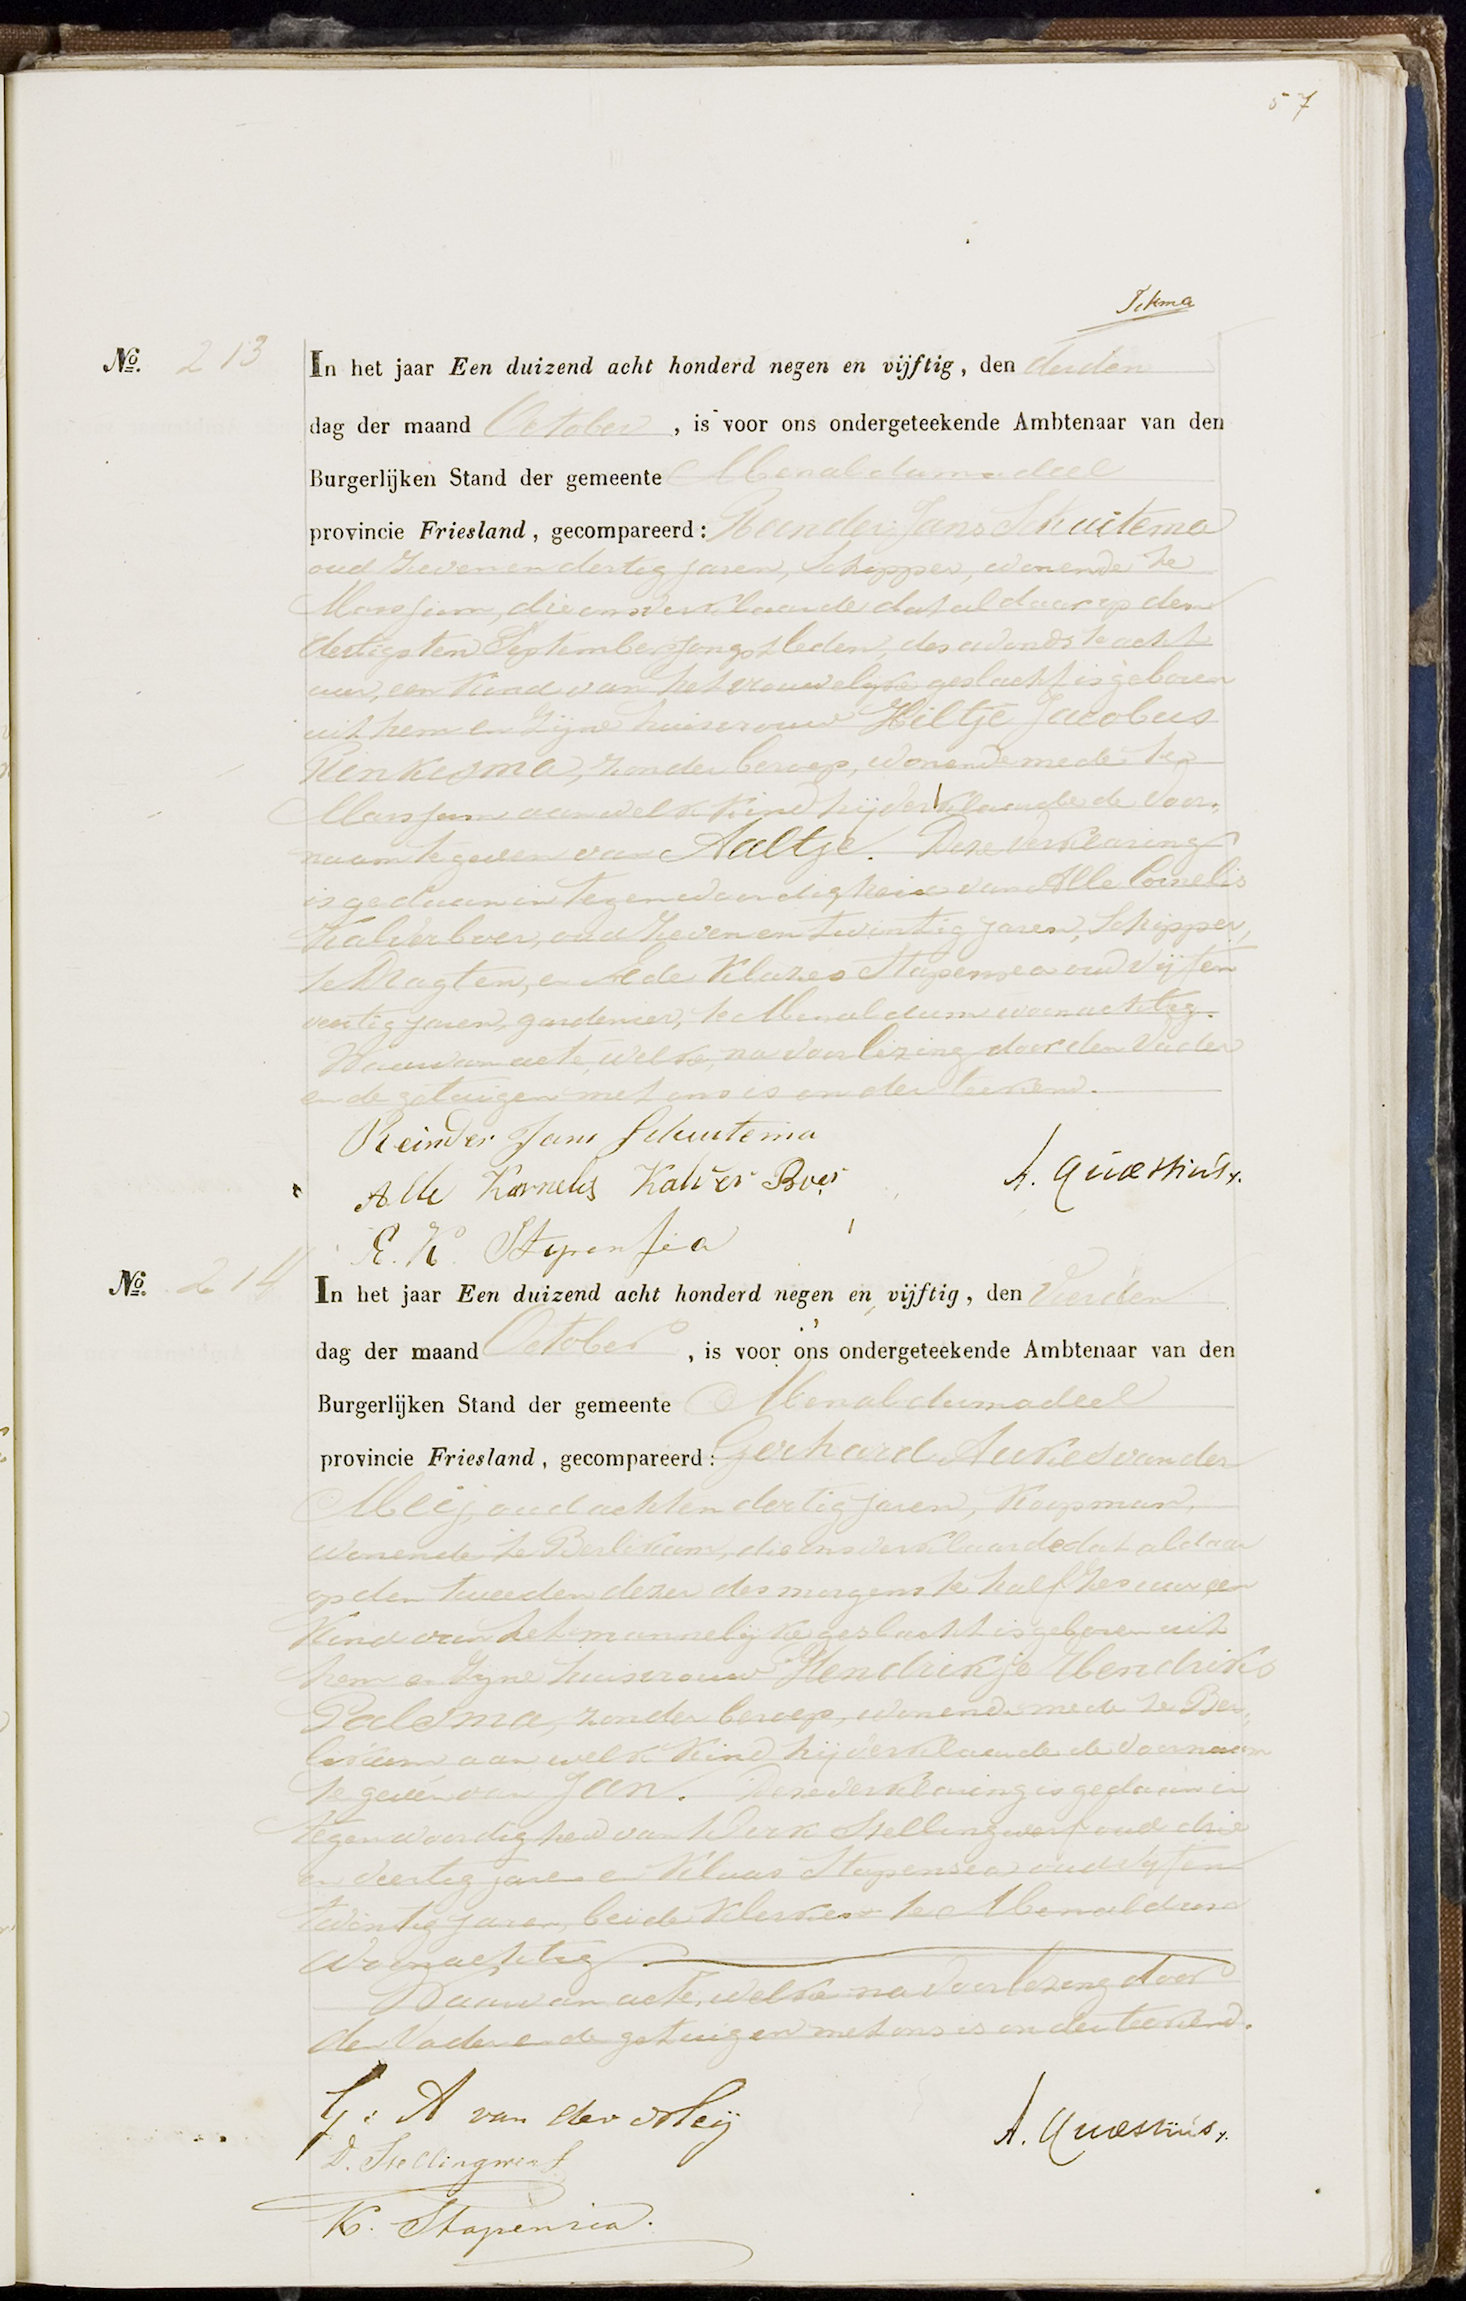 57
Tekma
No. 213
In het jaar Een duizend acht honderd negen en vijftig, den derden
dag der maand October, is voor ons ondergeteekende Ambtenaar van den
Burgerlijken Stand der gemeente Menaldumadeel
provincie Friesland, gecompareerd: Reinder Jans Schuitema
oud zeven en dertig jaren, Schipper, wonende te
Marssum, die ons verklaarde dat aldaar op den
dertigsten September jongstleden, des avonds te acht
uur, een kind van het vrouwelyke geslacht is geboren
uit hem en zyne huisvrouw Hiltje Jacobus
Rinkesma, zonder beroep, wonende mede te
Marssum aan welk kind hij verklaarde de voor-
naam te geven van Aaltje. Deze verklaring
is gedaan in tegenwoordigheid van Alle Cornelis
Kalverboer, oud zeven en twintig jaren, Schipper,
te Dragten, en Ede Klazes Stapensea oud vijf en
veertig jaren, gardenier, te Menaldum woonachtig.
Waarvan acte, welke, na voorlezing door den vader
en de getuigen met ons is onderteekend.
Reinder Jans Schuitema
Alle Kornelis Kalver Boer
A. Quaestius.
E. K. Stapensea
No. 214
In het jaar Een duizend acht honderd negen en vijftig, den vierden
dag der maand October, is voor ons ondergeteekende Ambtenaar van den
Burgerlijken Stand der gemeente Menaldumadeel
provincie Friesland, gecompareerd: Gerhard Aukes van der
Meij, oud acht en dertig jaren, Koopman,
wonende te Berlikum, die ons verklaarde dat aldaar
op den tweeden dezer des morgens te half zes uur, een
kind van het mannelijke geslacht is geboren uit
hem en zyne huisvrouw Hendrikje Hendriks
Palsma, zonder beroep, wonende mede te Ber-
likum aan welk kind hij verklaarde de voornaam
te geven van Jan. Deze verklaring is gedaan in
tegenwoordigheid van Dirk Stellingwerf oud drie
en veertig jaren en Klaas Stapensea oud vijf en
twintig jaren, beide klerken te Menaldum
woonachtig
Waarvan acte, welke na voorlezing door
den vader en de getuigen met ons is onderteekend.
G: A van der Meij
A. Quaestius.
D. Stellingwerf
K. Stapensea.